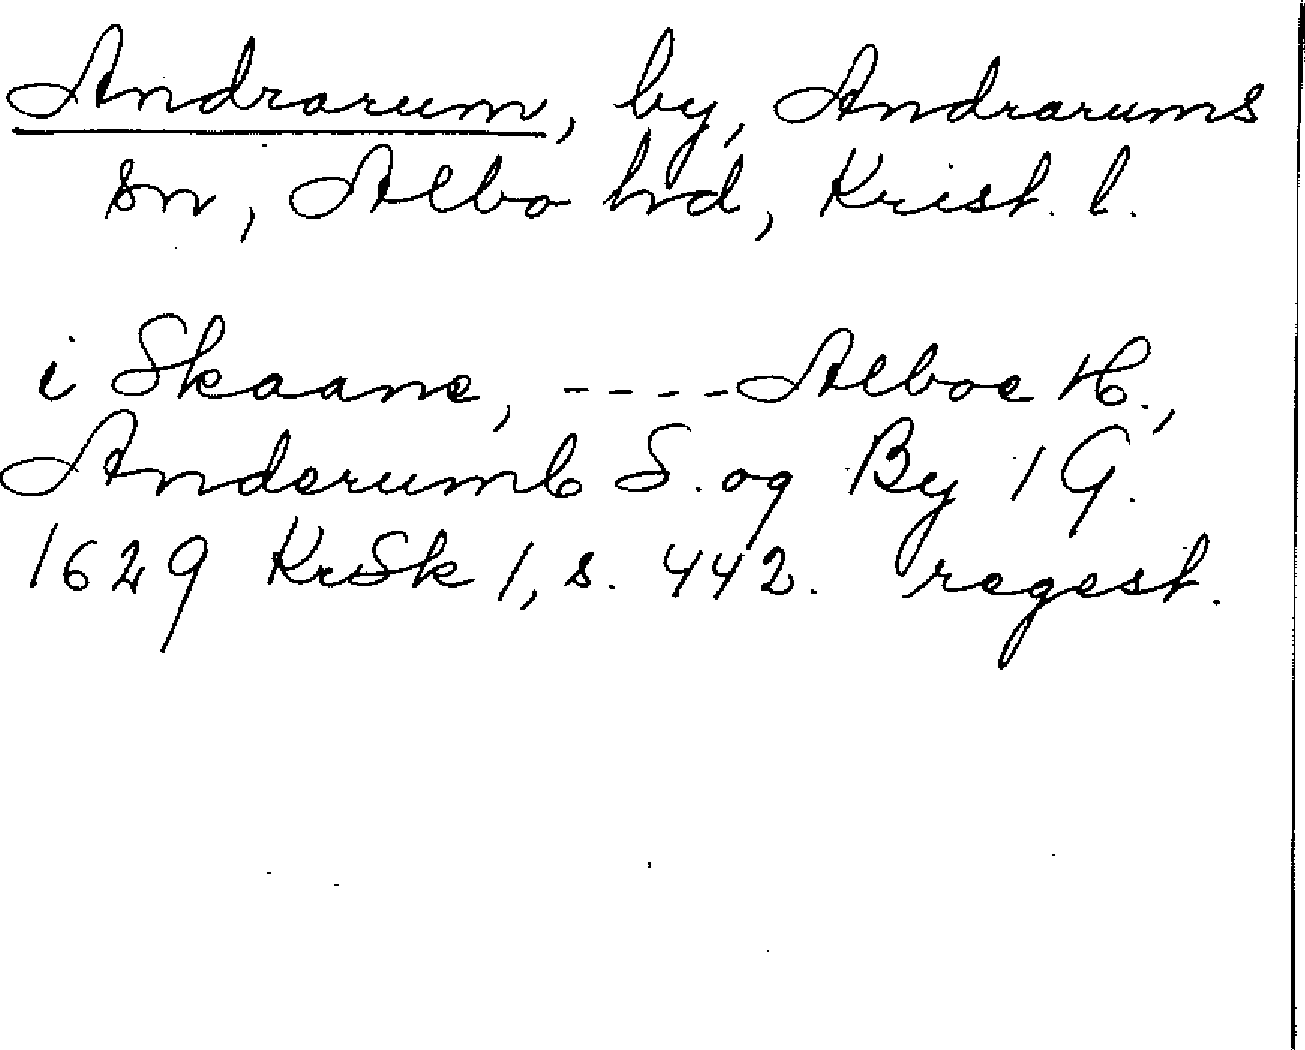 Andrarum, by, Andrarums
sn, Albo hd, Krist. l.
i Skaane, ---- Alboe H.,
Anderumb S. og By 1 G.
1629 KrSk 1, s. 442. regest.